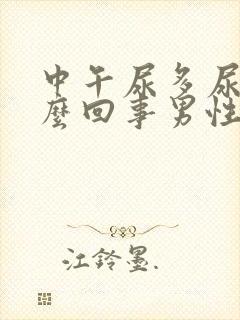 中午尿多尿
麼回事男性
江鈴墨.